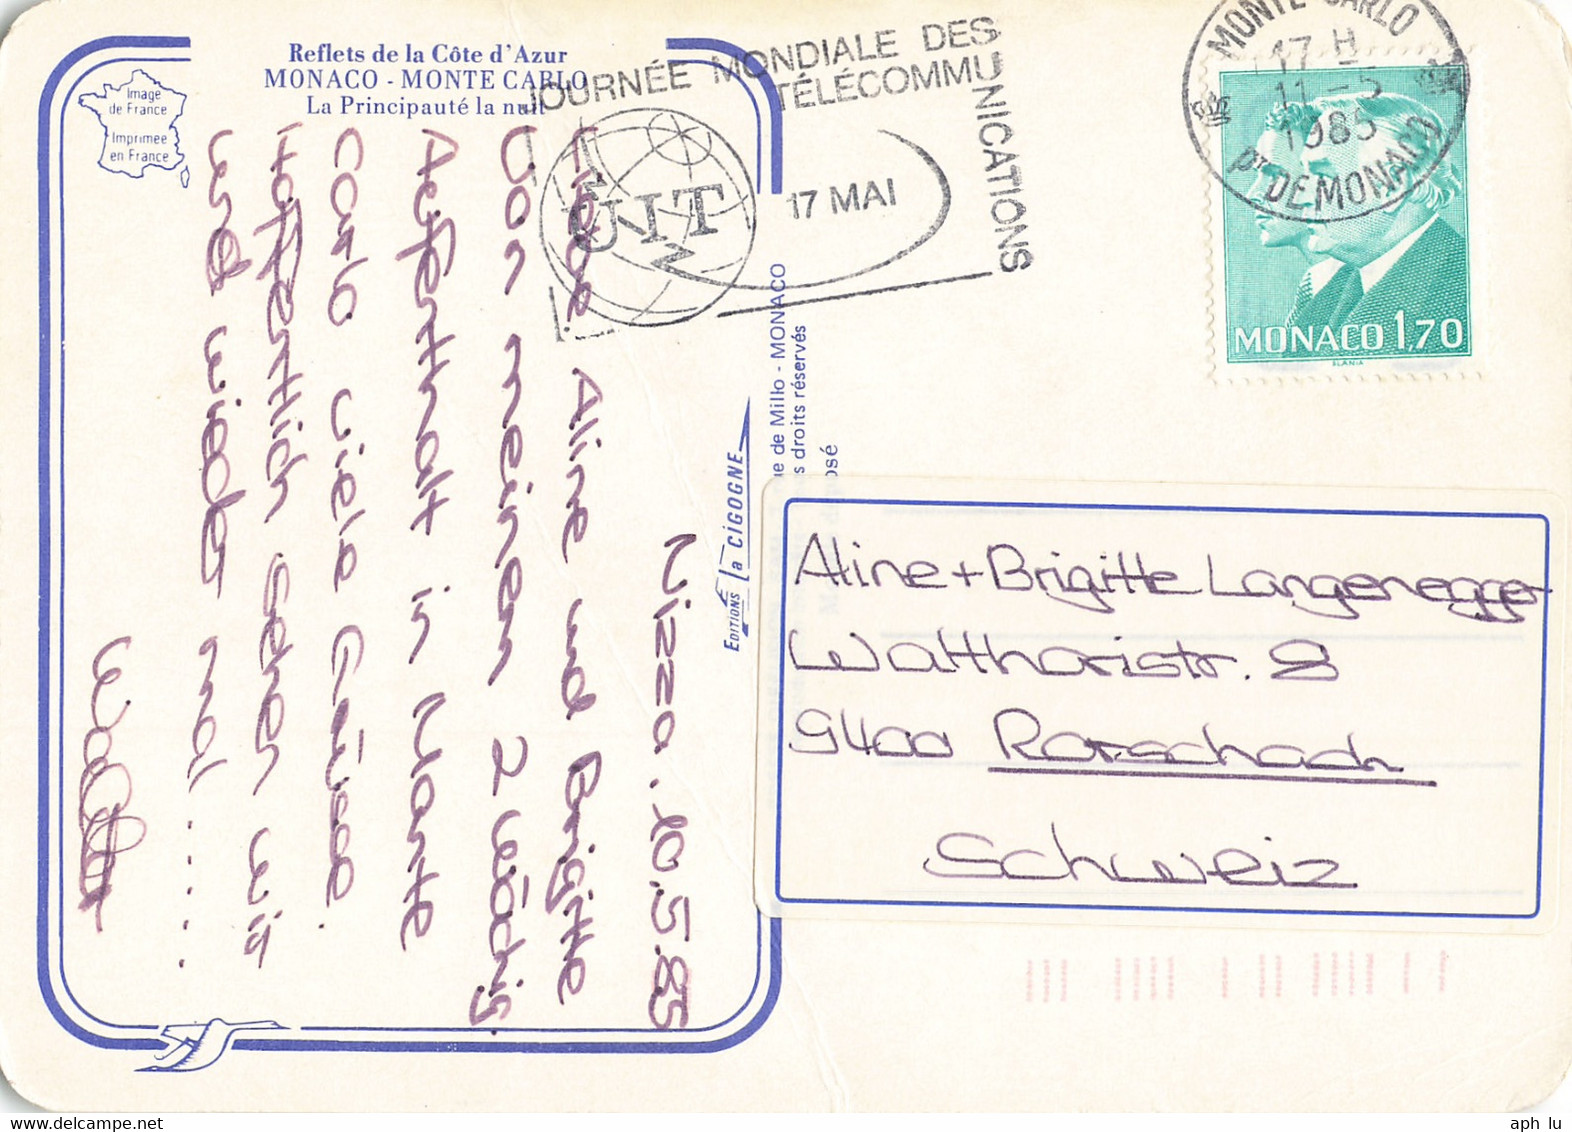 Reflets de la Côte d'Azur
MONACO - MONTE CARLO
La Principauté la nuit
Image
de France
Imprimée
en France
JOURNÉE MONDIALE DES
TÉLÉCOMMUNICATIONS
UIT
17 MAI
MONTE-CARLO
17 H
11 - 5
1985
PTE DE MONACO
MONACO 1,70
SLANIA
Nizza. 10.5.85
Hoi Aline und Brigitte
Von meinem 2 wöchig.
Aufenthalt in Monte
Carlo viele Grüsse.
Hoffentlich sehen wir
uns wieder mal.....
Walter
EDITIONS la CIGOGNE
ue de Millo - MONACO
s droits réservés
osé
Aline + Brigitte Langenegger
Waltharistr. 8
9400 Rorschach
Schweiz
aph lu